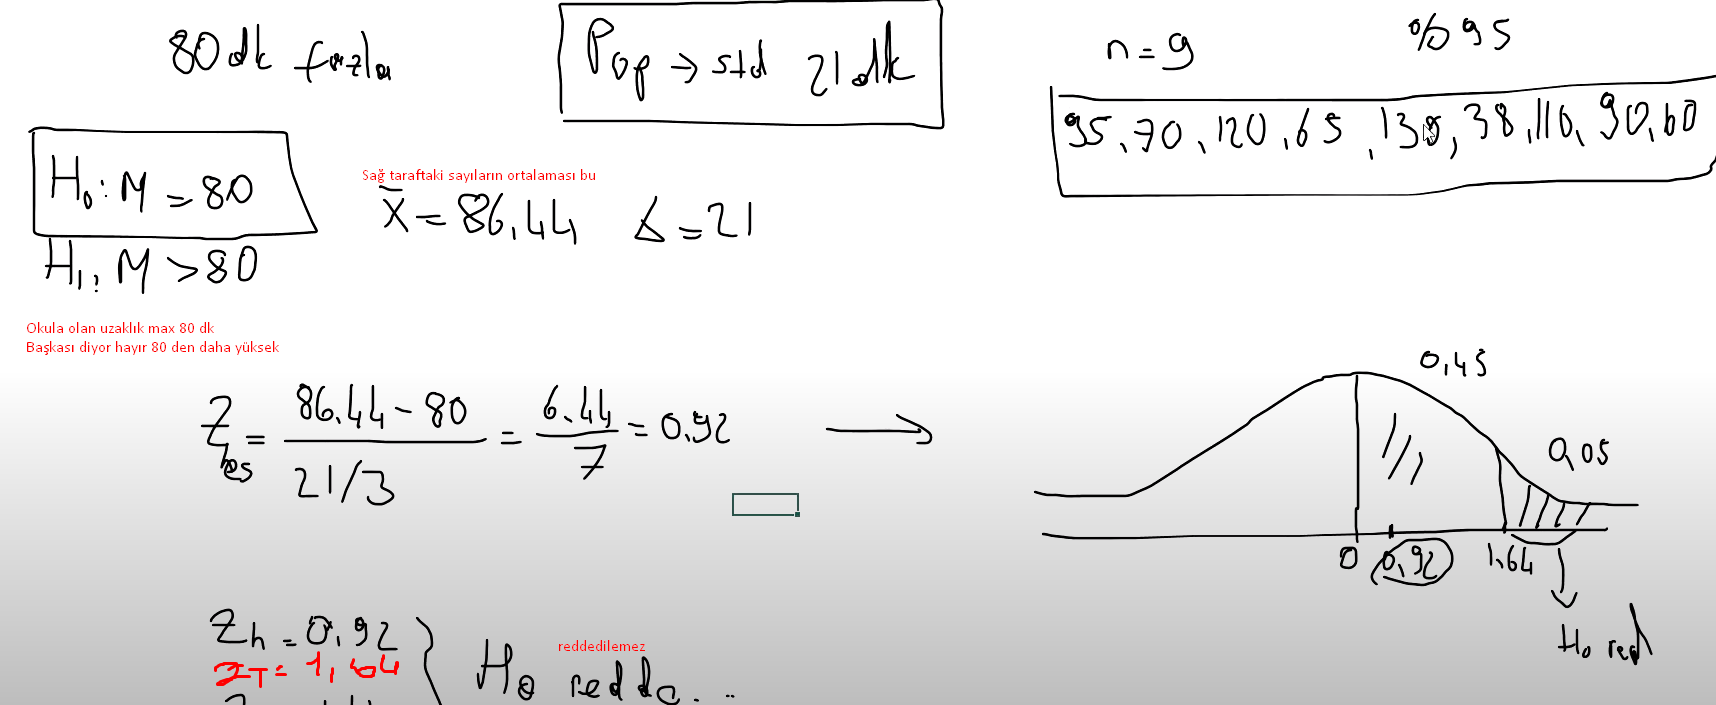 80 dk fazla
Pop → std 21 dk
n = 9
%95
95, 70, 120, 65, 130, 38, 110, 90, 60
H₀: M = 80
H₁: M > 80
Sağ taraftaki sayıların ortalaması bu
x̄ = 86,44
= 21
Okula olan uzaklık max 80 dk
Başkası diyor hayır 80 den daha yüksek
Z hes = 86.44 - 80 / 21/3 = 6.44 / 7 = 0.92 →
0,45
0,05
0 0,92 1,64
H₀ red
Zh = 0.92
ZT = 1,64
reddedilemez
H₀ redde...